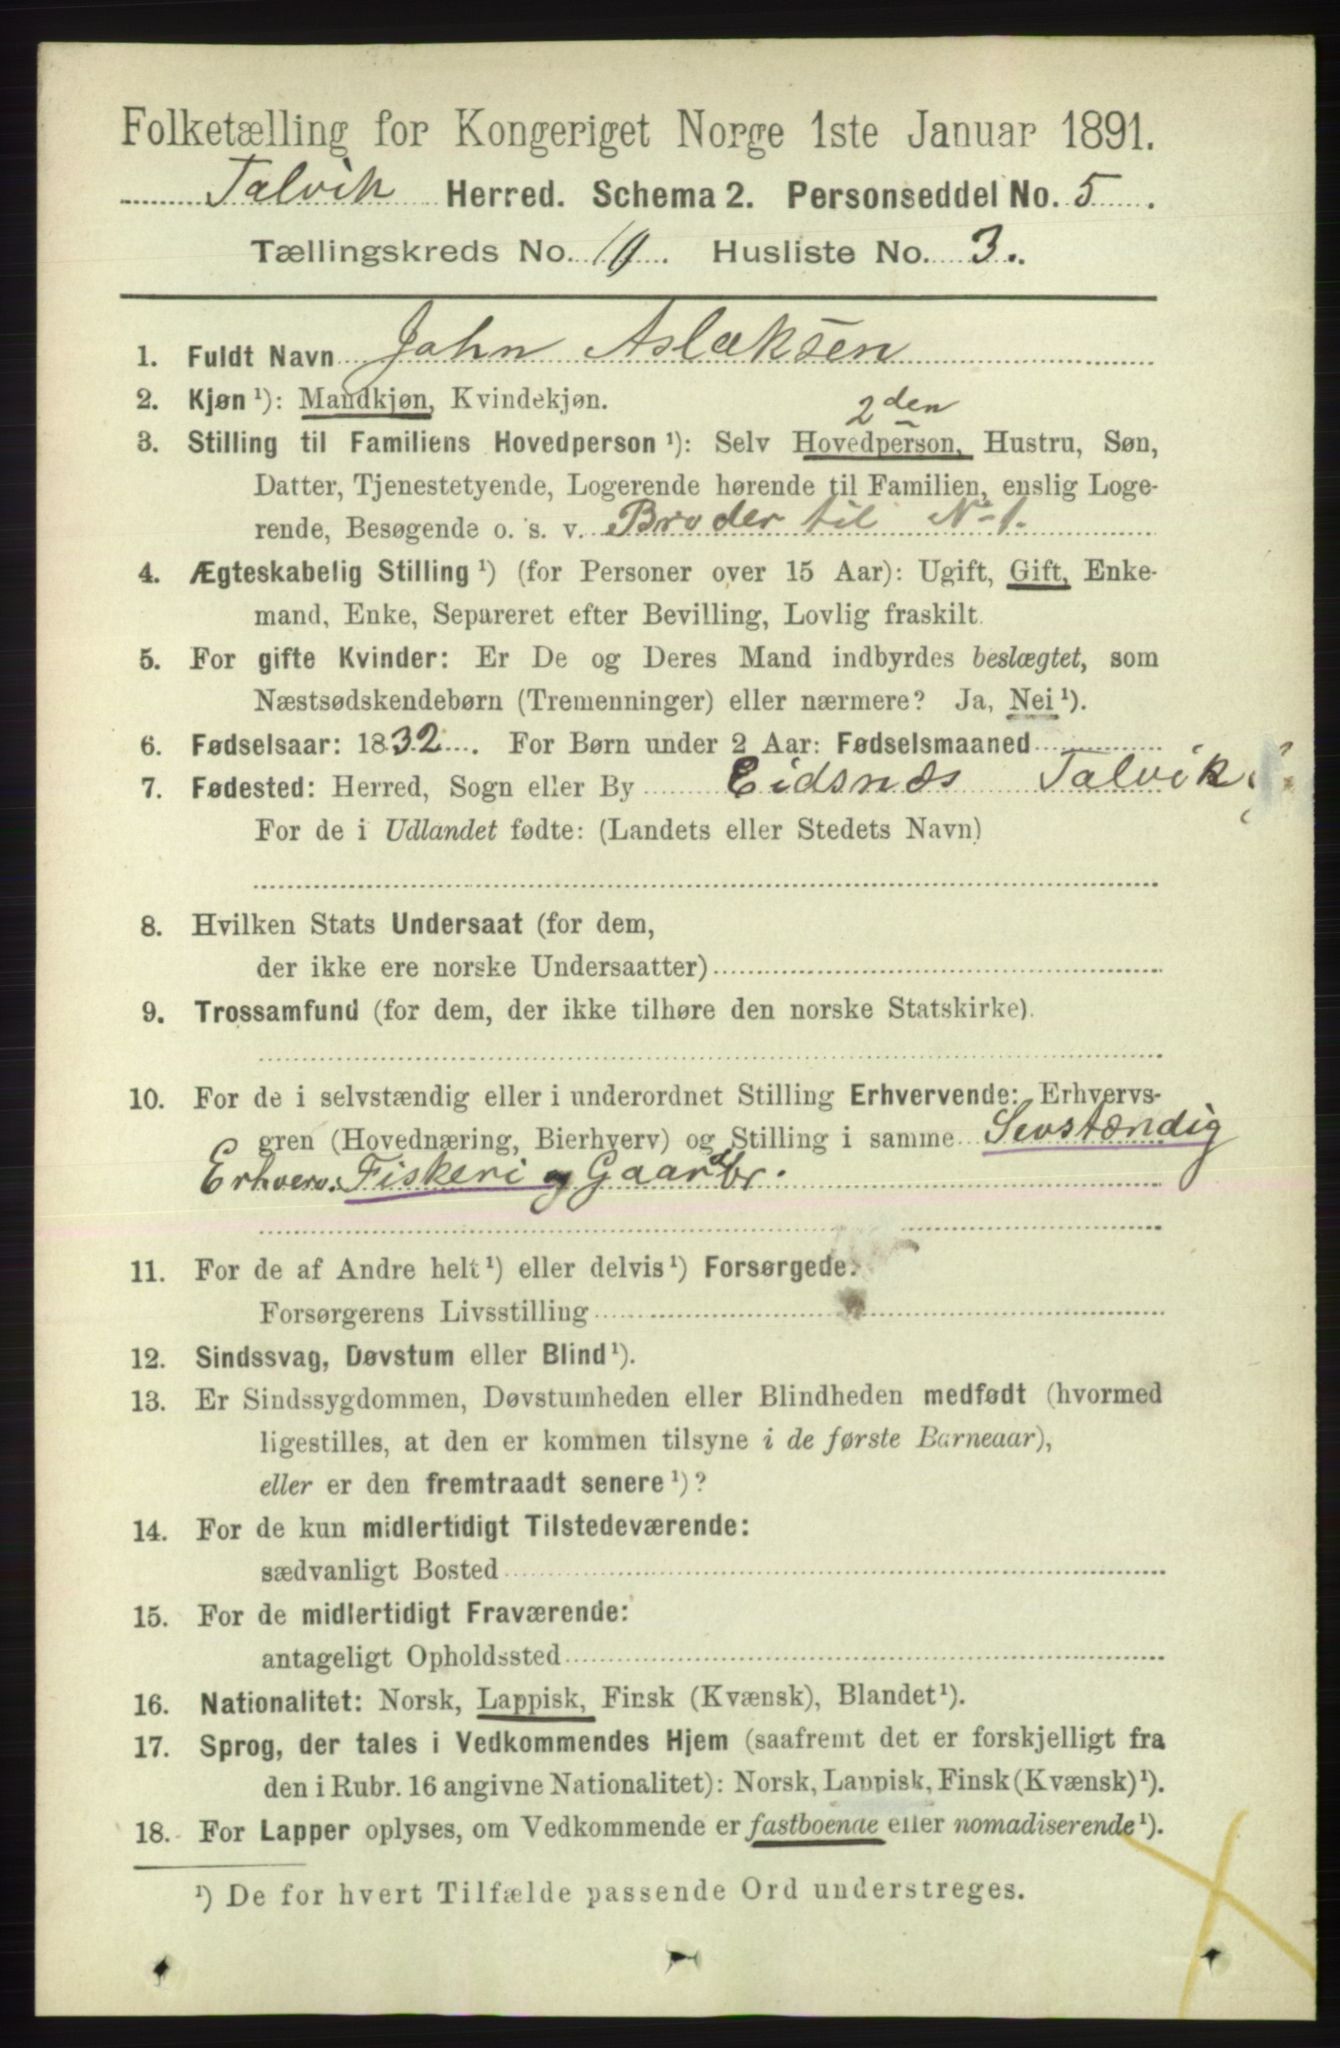 Folketælling for Kongeriget Norge 1ste Januar 1891.
Talvik Herred. Schema 2. Personseddel No. 5.
Tællingskreds No. 10. Husliste No. 3.
1. Fuldt Navn John Aslaksen
2. Kjøn ¹): Mandkjøn, Kvindekjøn.
2den
3. Stilling til Familiens Hovedperson ¹): Selv Hovedperson, Hustru, Søn,
Datter, Tjenestetyende, Logerende hørende til Familien, enslig Loge-
rende, Besøgende o. s. v. Broder til No 1.
4. Ægteskabelig Stilling ¹) (for Personer over 15 Aar): Ugift, Gift, Enke-
mand, Enke, Separeret efter Bevilling, Lovlig fraskilt.
5. For gifte Kvinder: Er De og Deres Mand indbyrdes beslægtet, som
Næstsødskendebørn (Tremenninger) eller nærmere? Ja, Nei ¹).
6. Fødselsaar: 1832. For Børn under 2 Aar: Fødselsmaaned
7. Fødested: Herred, Sogn eller By Eidsnæs Talvik
For de i Udlandet fødte: (Landets eller Stedets Navn)
8. Hvilken Stats Undersaat (for dem,
der ikke ere norske Undersaatter)
9. Trossamfund (for dem, der ikke tilhøre den norske Statskirke).
10. For de i selvstændig eller i underordnet Stilling Erhvervende: Erhvervs-
gren (Hovednæring, Bierhverv) og Stilling i samme Sevstændig
Erhverv. Fiskeri og Gaardbr.
11. For de af Andre helt ¹) eller delvis ¹) Forsørgede:
Forsørgerens Livsstilling
12. Sindssvag, Døvstum eller Blind ¹).
13. Er Sindssygdommen, Døvstumheden eller Blindheden medfødt (hvormed
ligestilles, at den er kommen tilsyne i de første Barneaar),
eller er den fremtraadt senere ¹)?
14. For de kun midlertidigt Tilstedeværende:
sædvanligt Bosted
15. For de midlertidigt Fraværende:
antageligt Opholdssted
16. Nationalitet: Norsk, Lappisk, Finsk (Kvænsk), Blandet ¹).
17. Sprog, der tales i Vedkommendes Hjem (saafremt det er forskjelligt fra
den i Rubr. 16 angivne Nationalitet): Norsk, Lappisk, Finsk (Kvænsk) ¹).
18. For Lapper oplyses, om Vedkommende er fastboende eller nomadiserende ¹).
¹) De for hvert Tilfælde passende Ord understreges.